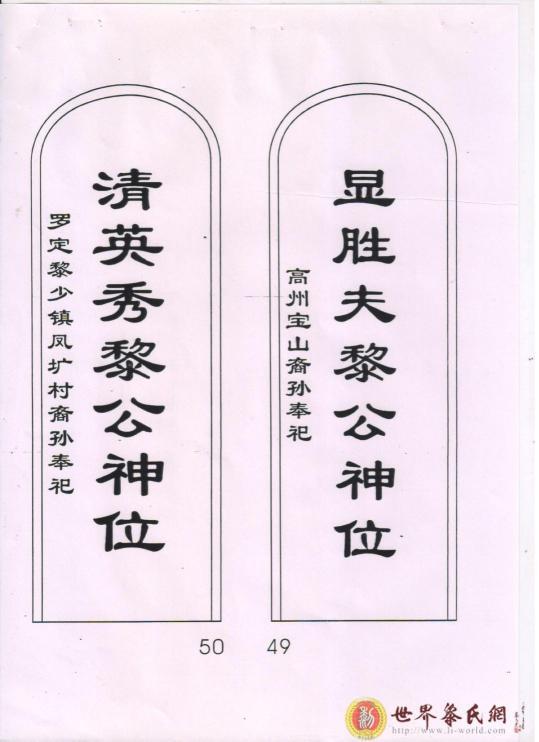 显胜夫黎公神位
高州宝山裔孙奉祀
清英秀黎公神位
罗定黎少镇凤圹村裔孙奉祀
50
49
世界黎氏網
http://www.li-world.com